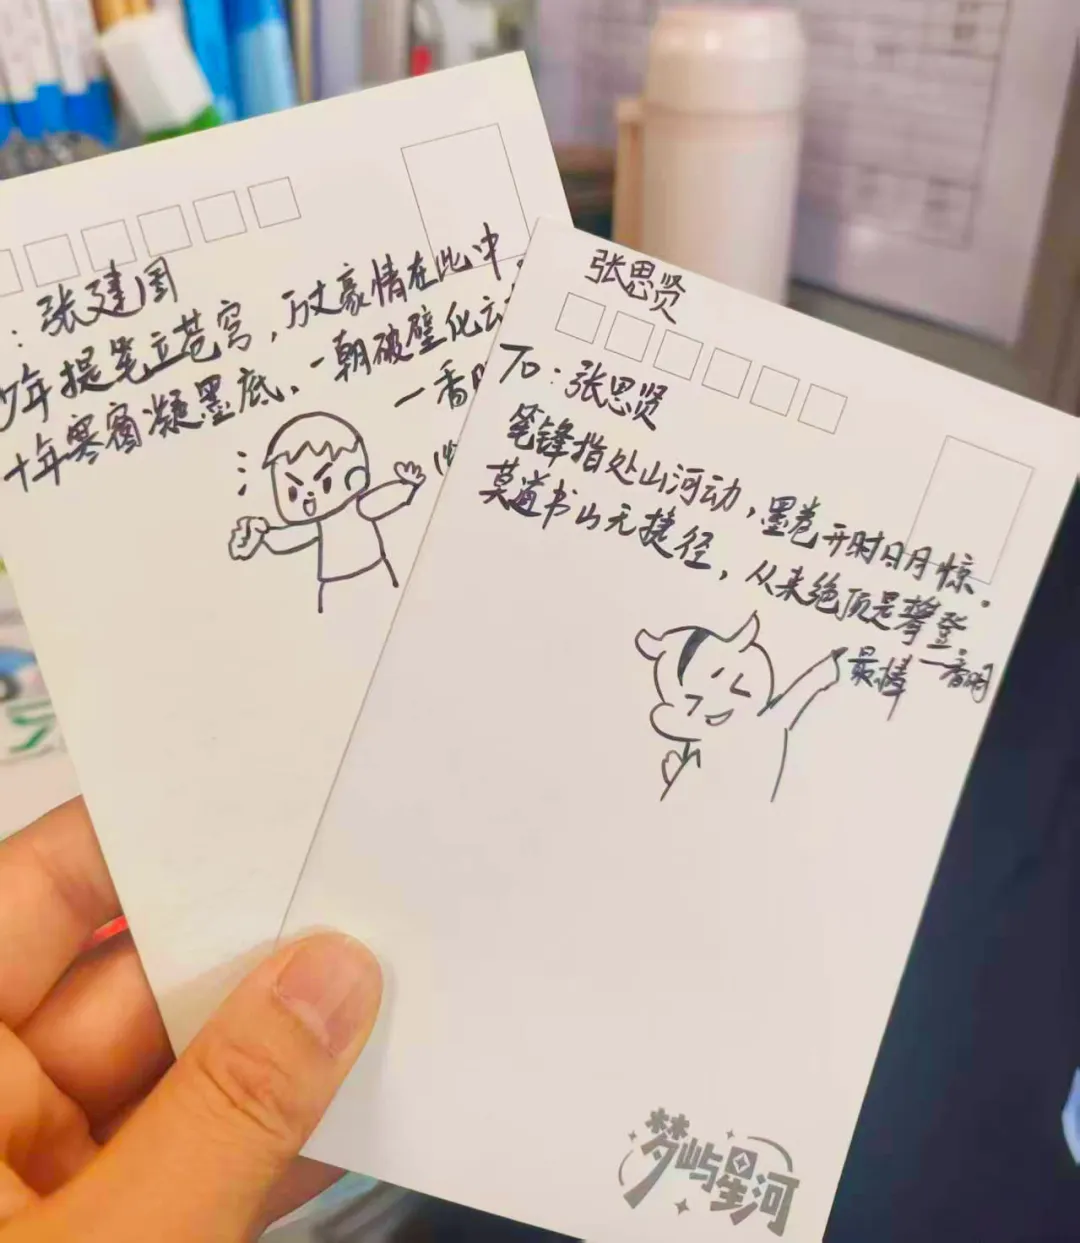 ：张建国
少年提笔立苍穹，万丈豪情在此中。
十年寒窗凝墨底，一朝破壁化云
一番
张思贤
To：张思贤
笔锋指处山河动，墨卷开时日月惊。
莫道书山无捷径，从来绝顶是攀登。
最棒一番
梦屿星河